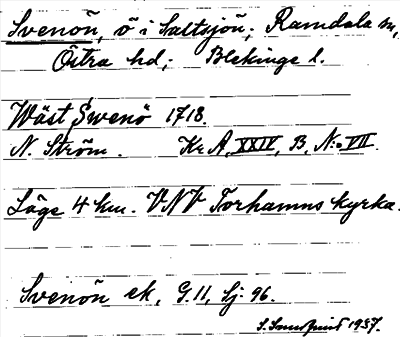 Svenön, ö i Saltsjön; Ramdala sn,
Östra hd; Blekinge l.
Wäst Swenö 1718.
N. Ström. Kr. A, XXIV, B, N:o VII.
Läge 4 km. VNV Torhamns kyrka.
Svenön ek, G. 11, Sj. 96.
1937.